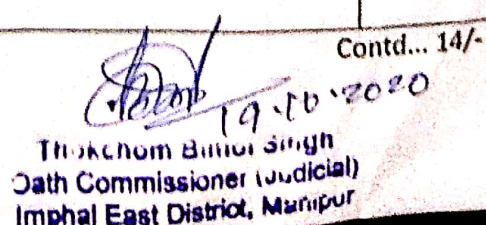 Contd... 14/-
19.10.2020
Thokchom Bimol Singh
Oath Commissioner (Judicial)
Imphal East District, Manipur